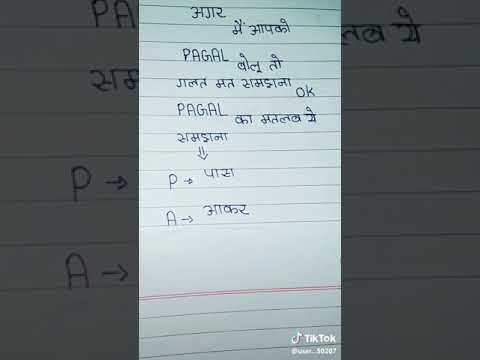 अगर
मैं आपको
PAGAL बोलू तो
गलत मत समझना
OK
PAGAL का मतलब ये
समझना
P → पास
A → आकर
TikTok
@user...50287